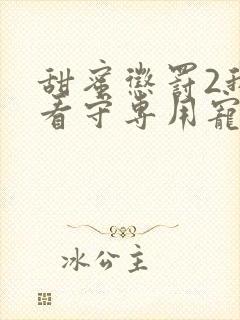 甜蜜懲罰2
看守專用寵
冰公主